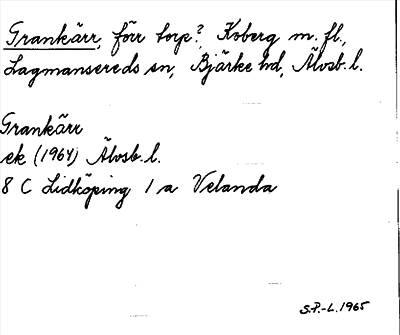 Grankärr, förr torp?, Koberg m. fl.,
Lagmansereds sn, Bjärke hd, Älvsb. l.
Grankärr
ek (1964) Älvsb. l.
8 C Lidköping 1 a Velanda
S.P.-L. 1965